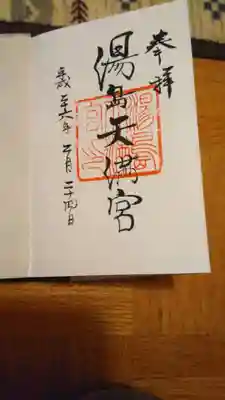 奉拝
湯島天満宮
平成二十六年 月二十四日